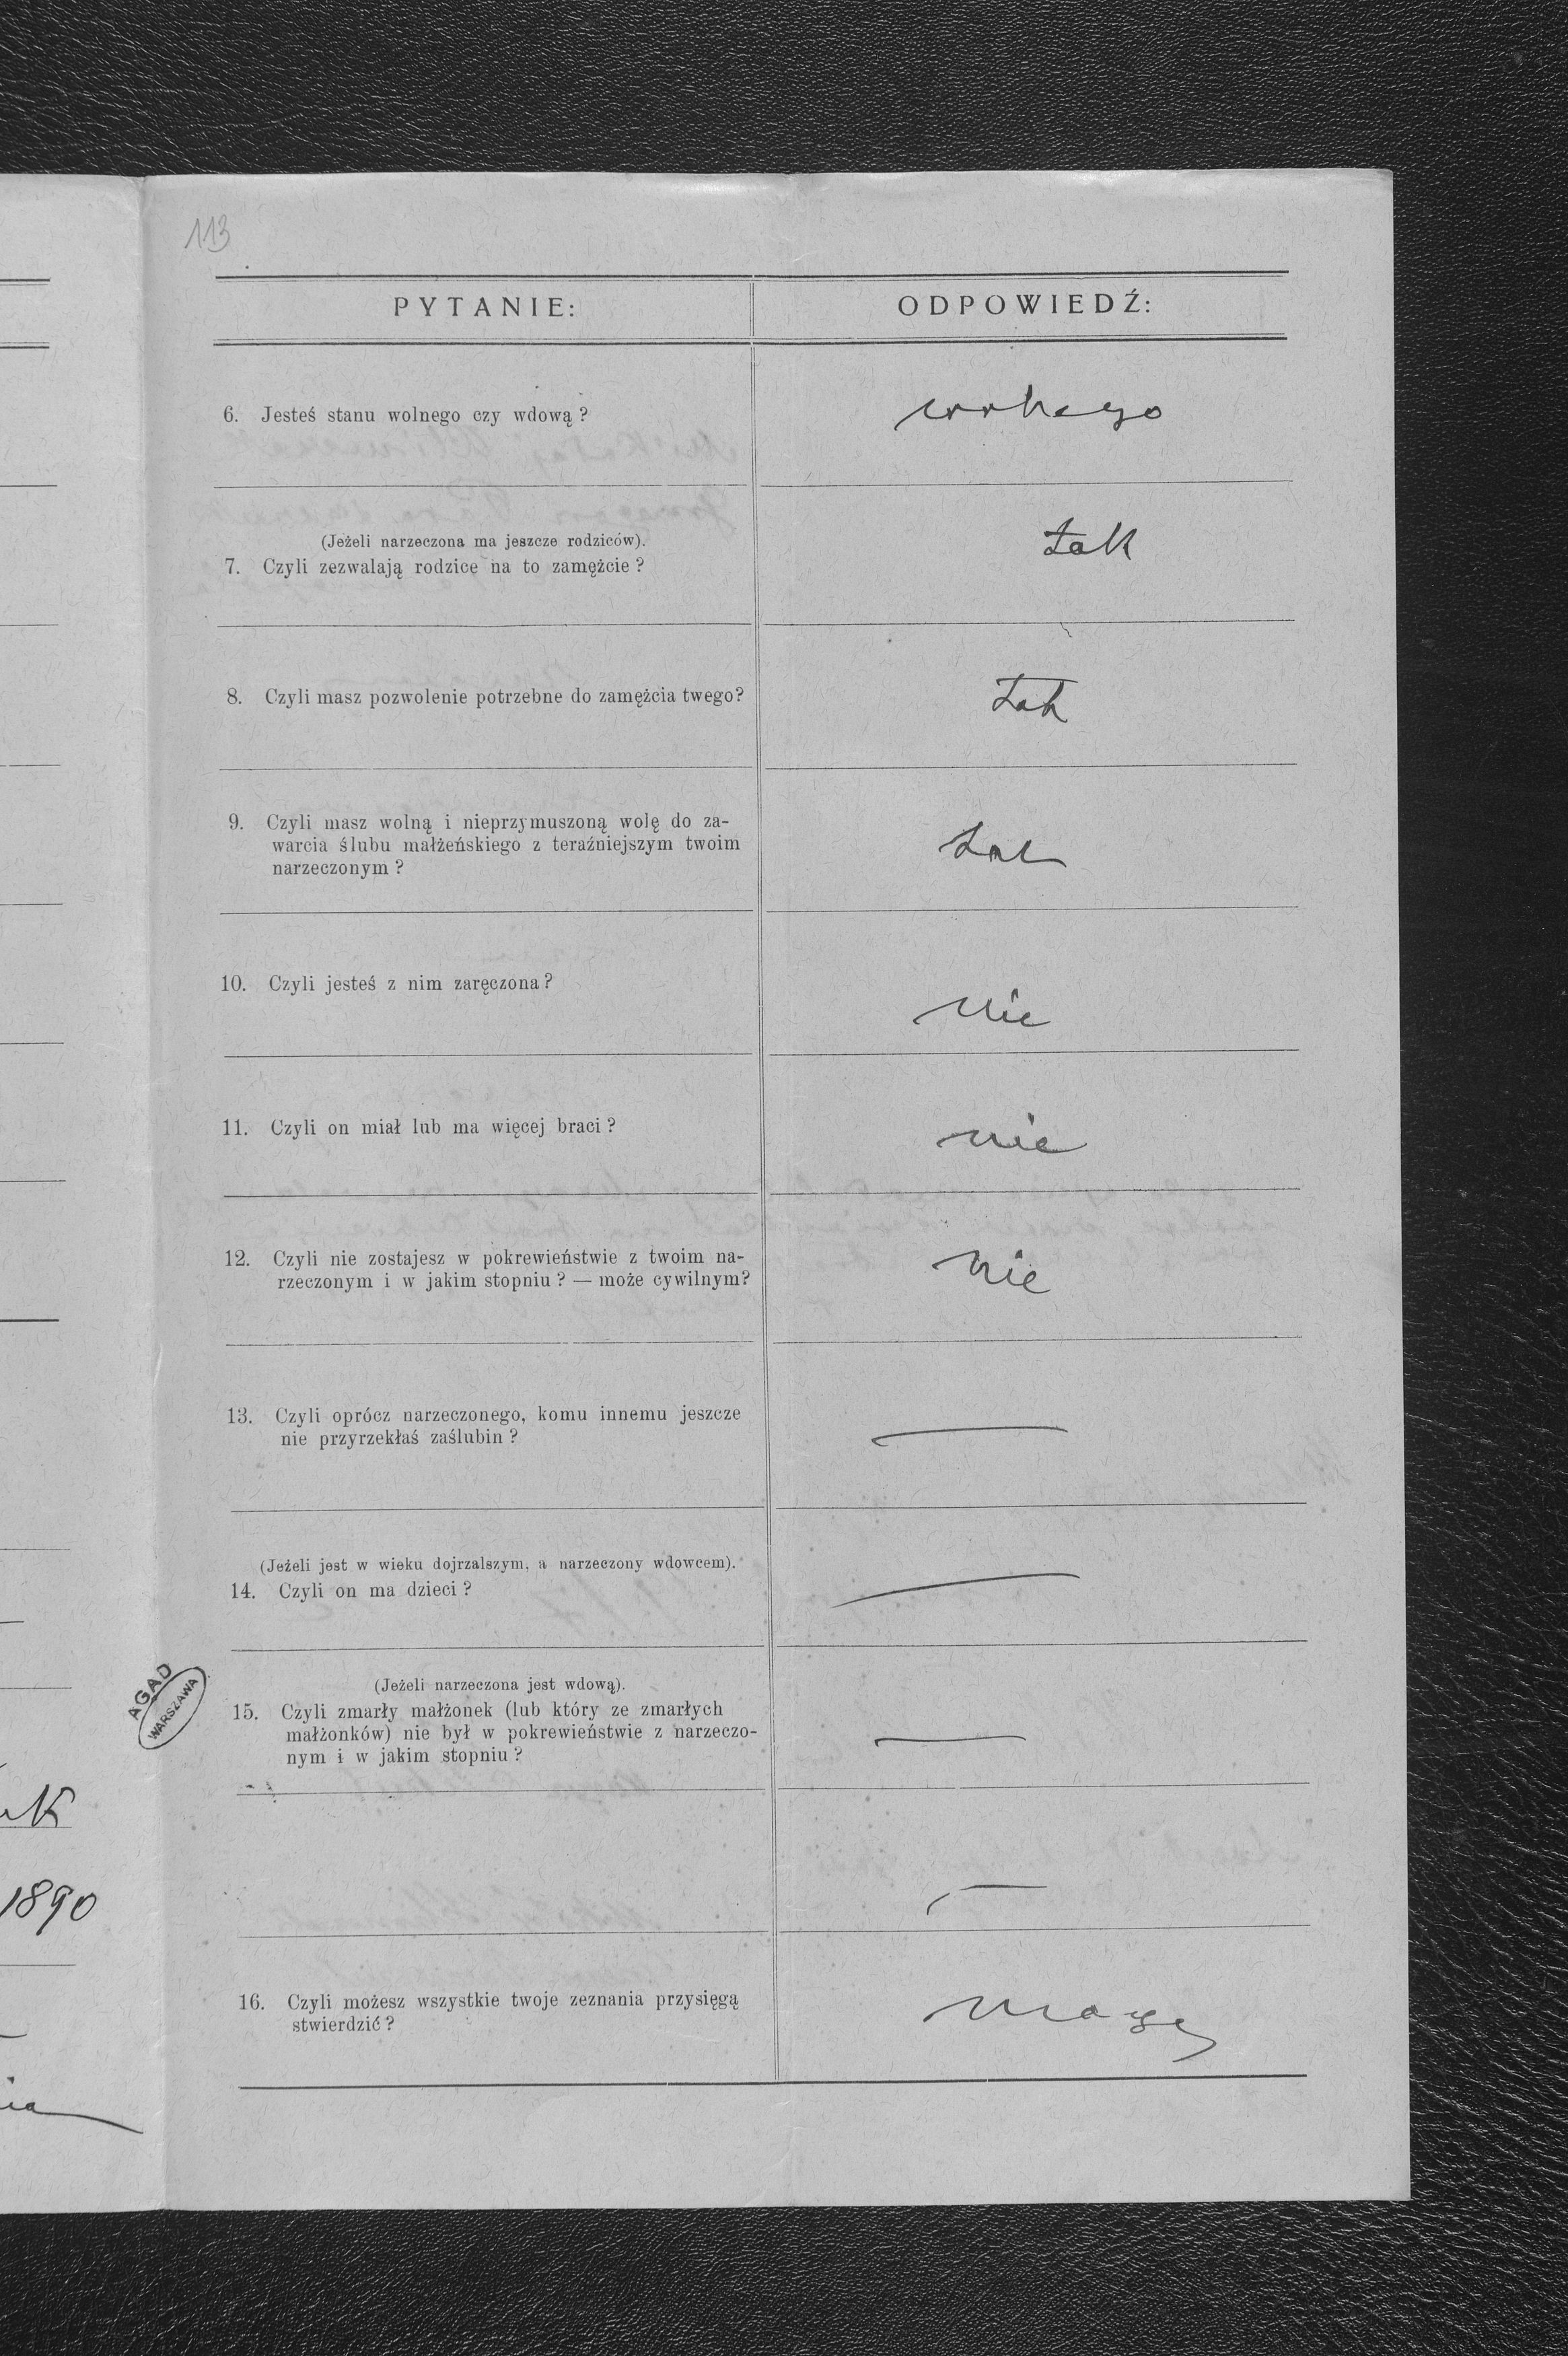 113
PYTANIE:
ODPOWIEDŹ:
6. Jesteś stanu wolnego czy wdową?
wolnego
(Jeżeli narzeczona ma jeszcze rodziców).
7. Czyli zezwalają rodzice na to zamężcie?
tak
8. Czyli masz pozwolenie potrzebne do zamężcia twego?
tak
9. Czyli masz wolną i nieprzymuszoną wolę do za-
warcia ślubu małżeńskiego z teraźniejszym twoim
narzeczonym?
tak
10. Czyli jesteś z nim zaręczona?
nie
11. Czyli on miał lub ma więcej braci?
nie
12. Czyli nie zostajesz w pokrewieństwie z twoim na-
rzeczonym i w jakim stopniu? — może cywilnym?
nie
13. Czyli oprócz narzeczonego, komu innemu jeszcze
nie przyrzekłaś zaślubin?
—
(Jeżeli jest w wieku dojrzalszym, a narzeczony wdowcem).
14. Czyli on ma dzieci?
—
(Jeżeli narzeczona jest wdową).
15. Czyli zmarły małżonek (lub który ze zmarłych
małżonków) nie był w pokrewieństwie z narzeczo-
nym i w jakim stopniu?
—
—
16. Czyli możesz wszystkie twoje zeznania przysięgą
stwierdzić?
mogę
AGAD
WARSZAWA
1890